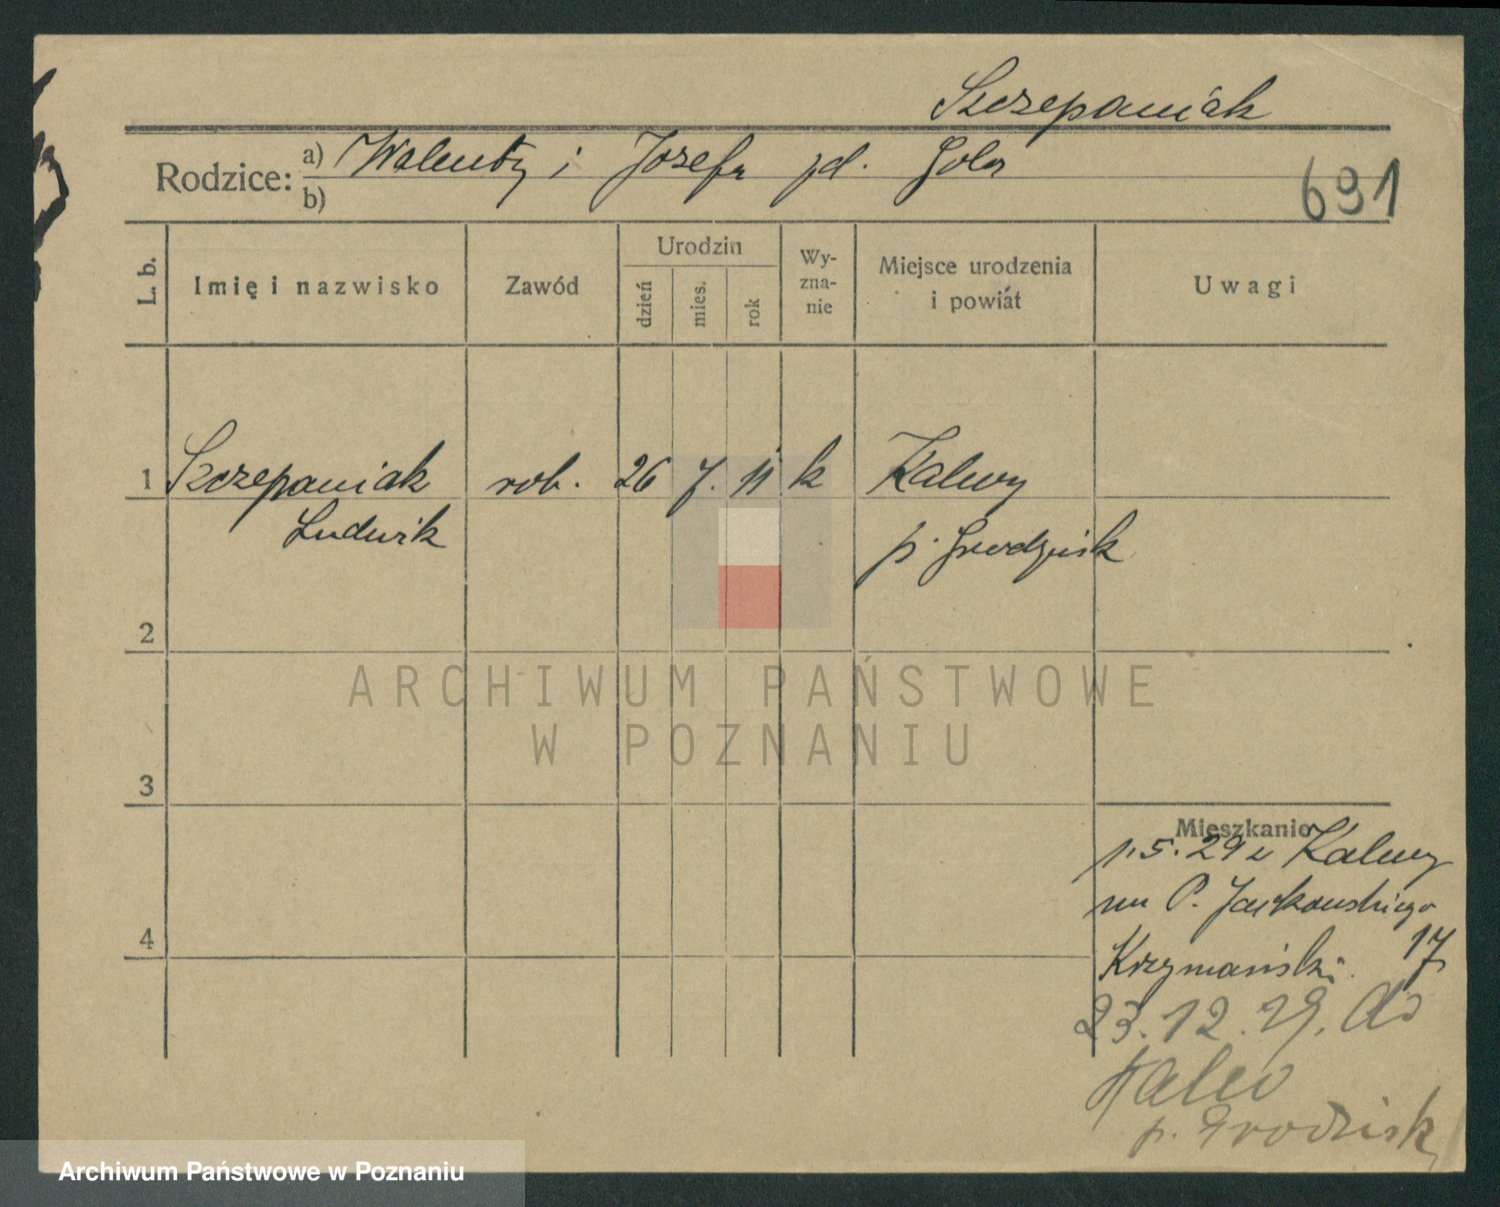 Szczepaniak
Rodzice: a) Walenty i Józefa zd. Gola
b)
691
L. b.
Imię i nazwisko
Zawód
Urodzin
dzień
mies.
rok
Wy-
zna-
nie
Miejsce urodzenia
i powiat
Uwagi
1 Szczepaniak rob. 26 7. 11 k Kalwy
Ludwik p. Grodzisk
2
ARCHIWUM PAŃSTWOWE
W POZNANIU
3
4
Mieszkanie
1.5.29 z Kalwy
na P. Jackowskiego
Krzymański. 17
23.12.29. do
Kalw
p. Grodzisk
Archiwum Państwowe w Poznaniu